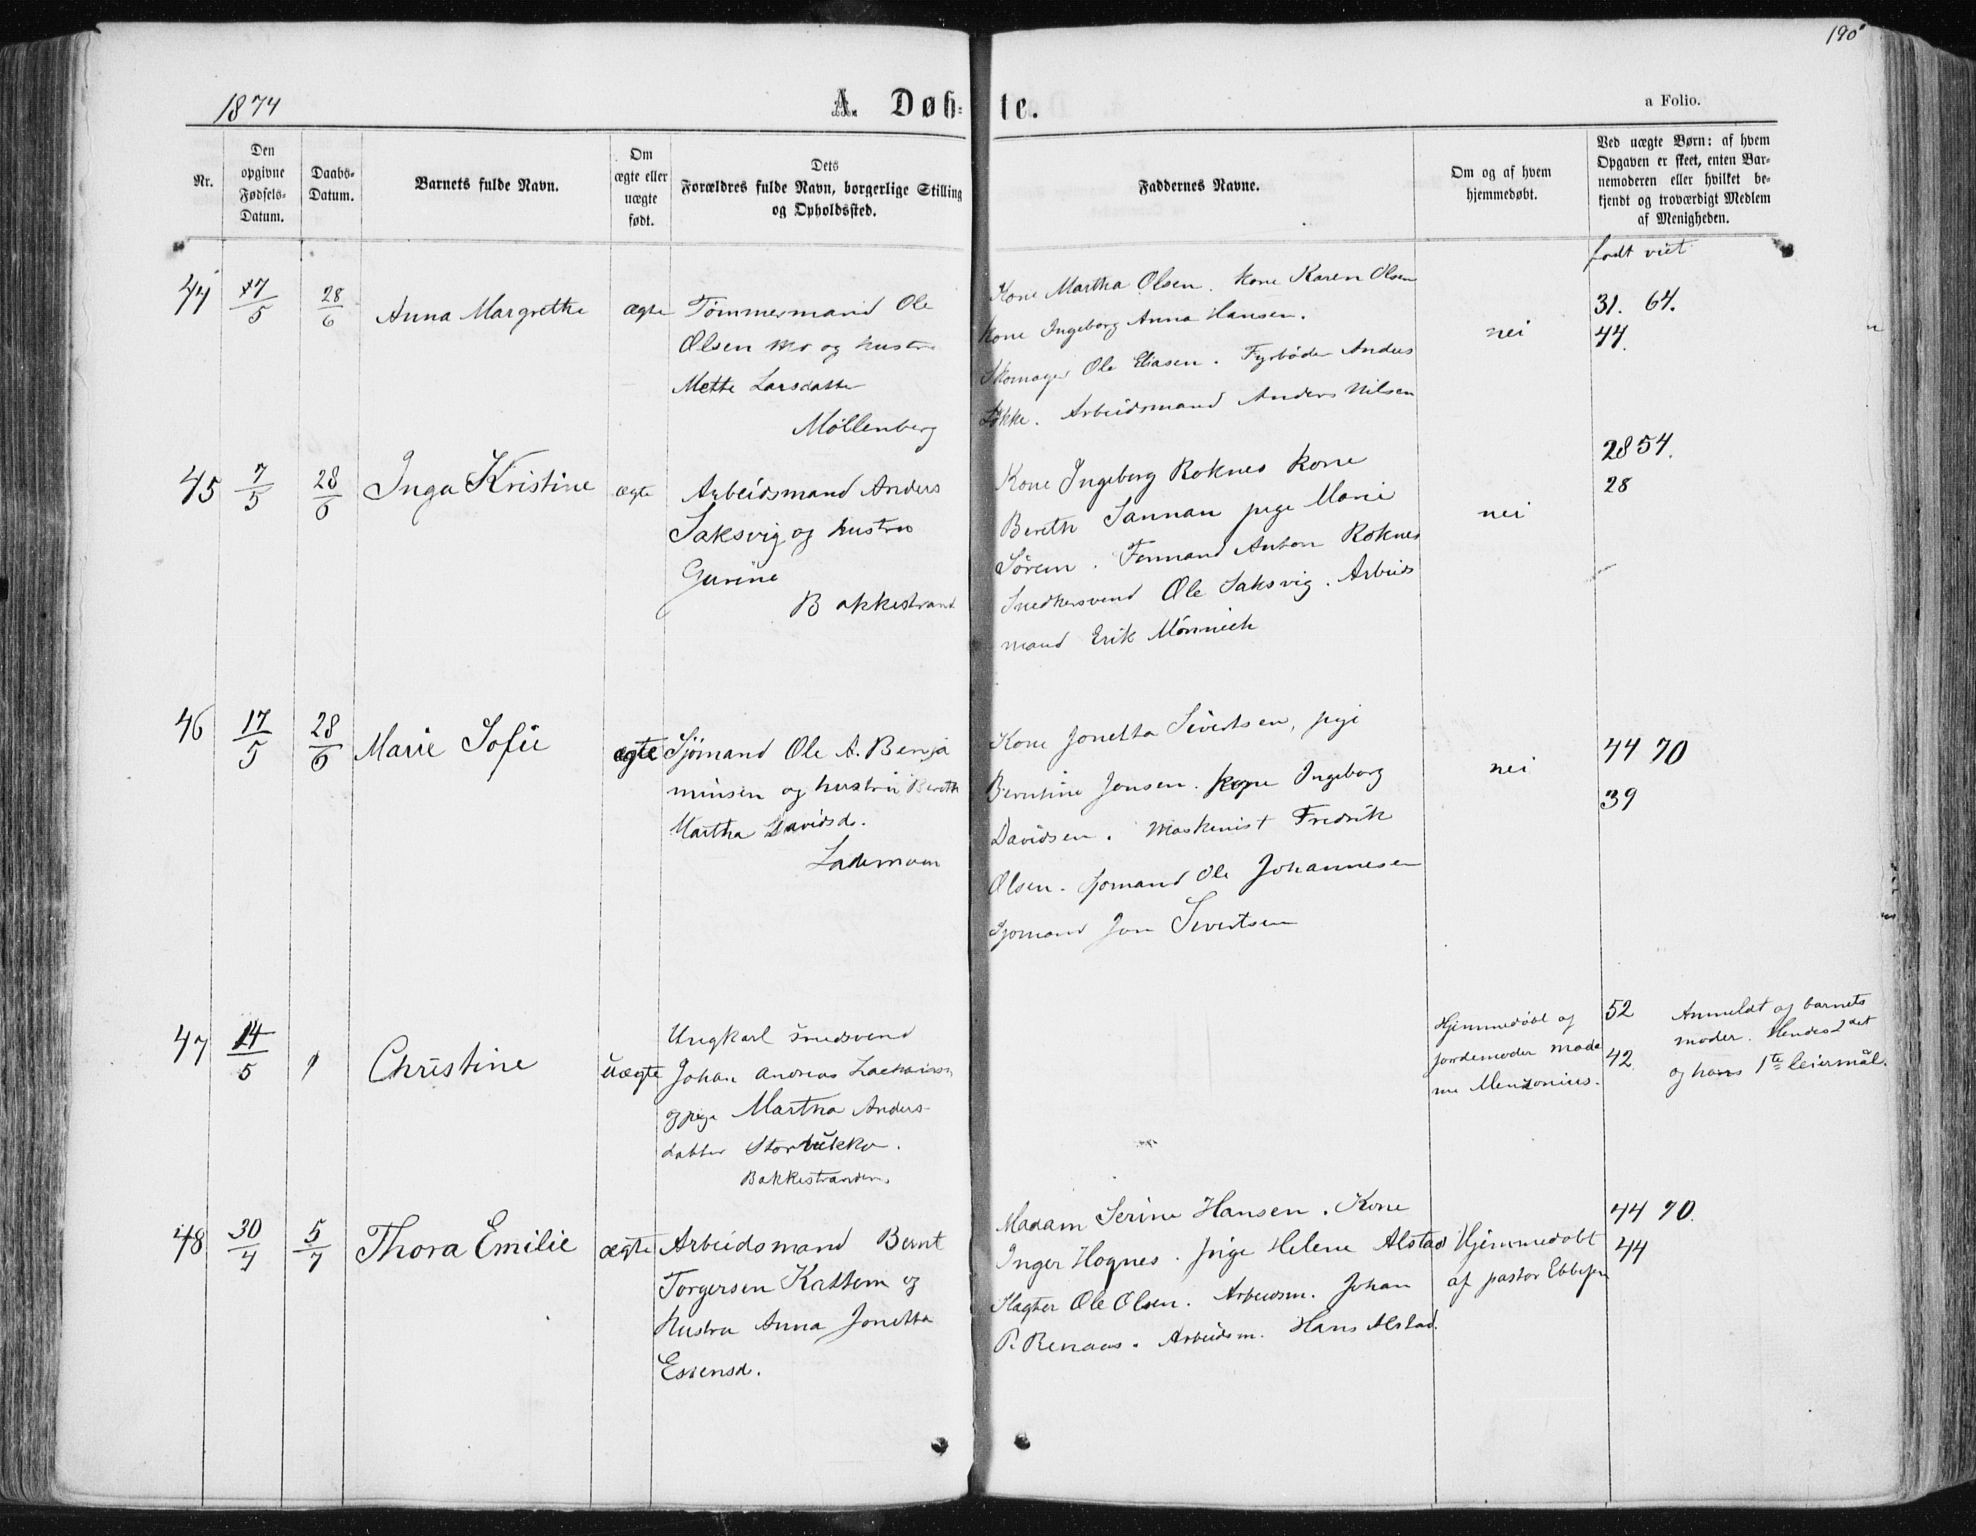 190
1874
A. Døb-te.
a Folio.
Nr.
Den opgivne Fødsels-Datum.
Daabs-Datum.
Barnets fulde Navn.
Om ægte eller uægte født.
Dets Forældres fulde Navn, borgerlige Stilling og Opholdssted.
Faddernes Navne.
Om og af hvem hjemmedøbt.
Ved uægte Børn: af hvem Opgaven er skeet, enten Barnemoderen eller hvilket bekjendt og troværdigt Medlem af Menigheden.
født viet
44 17/5 28/6 Anna Margrethe ægte
Tømmermand Ole
Olsen Mo og hustru
Mette Larsdatter
Møllenberg
Kone Martha Olsen. Kone Karen Olsen
Kone Ingeborg Anna Hansen.
Skomager Ole Eliasen. Fyrbøder Anders
Løkke. Arbeidsmand Anders Nilsen
nei
31. 64.
44.
45 7/5 28/6 Inga Kristine ægte
Arbeidsmand Anders
Saksvig og hustru
Gurine
Bakkestrand
Kone Ingeborg Roknes kone
Bereth Sannan pige Marie
Sörem. Formand Anton Roknes
Snedkersvend Ole Saksvig. Arbeids
mand Erik Mönnich
nei
28 54.
28
46 17/5 28/6 Marie Sofie ægte
Sjømand Ole A. Benja
minsen og hustru Bereth
Martha Davidsd.
Lademoen
Kone Jonetta Sivertsen, pige
Berntine Jonsen. Kone Ingeborg
Davidsen. Maskinist Fredrik
Olsen. Sjomand Ole Johannesen
Sjomand Jon Sivertsen
nei
44 70
39
47 14/5 Christine uægte
Ungkarl smedsvend
Johan Andreas Zachariasen
og pige Martha Anders-
datter
Bakkestranden.
Hjemmedöbt af
jordemoder mada
me
52
42.
Anmeldt af barnets
moder. Hendes 2det
og hans 1te leiermål.
48 30/4 5/7 Thora Emilie ægte
Arbeidsmand Bernt
Torgersen Kattem og
Hustru Anna Jonetta
Estensd.
Madam Serine Hansen. Kone
Inger Hognes. Pige Helene Alstad
Slagter Ole Olsen. Arbeidsm. Johan
P. Renaas. Arbeidsm. Hans Alstad.
Hjemmedöbt
af pastor Ebbesen
44 70.
44